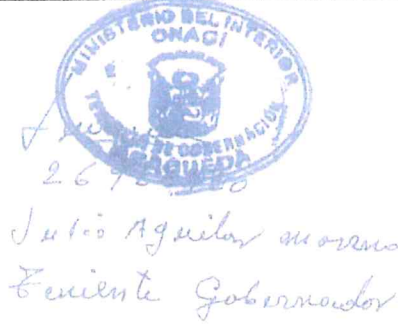 MINISTERIO DEL INTERIOR
ONAGI
DE GOBERNACIÓN
Julio Aguilar moreno
Teniente Gobernador